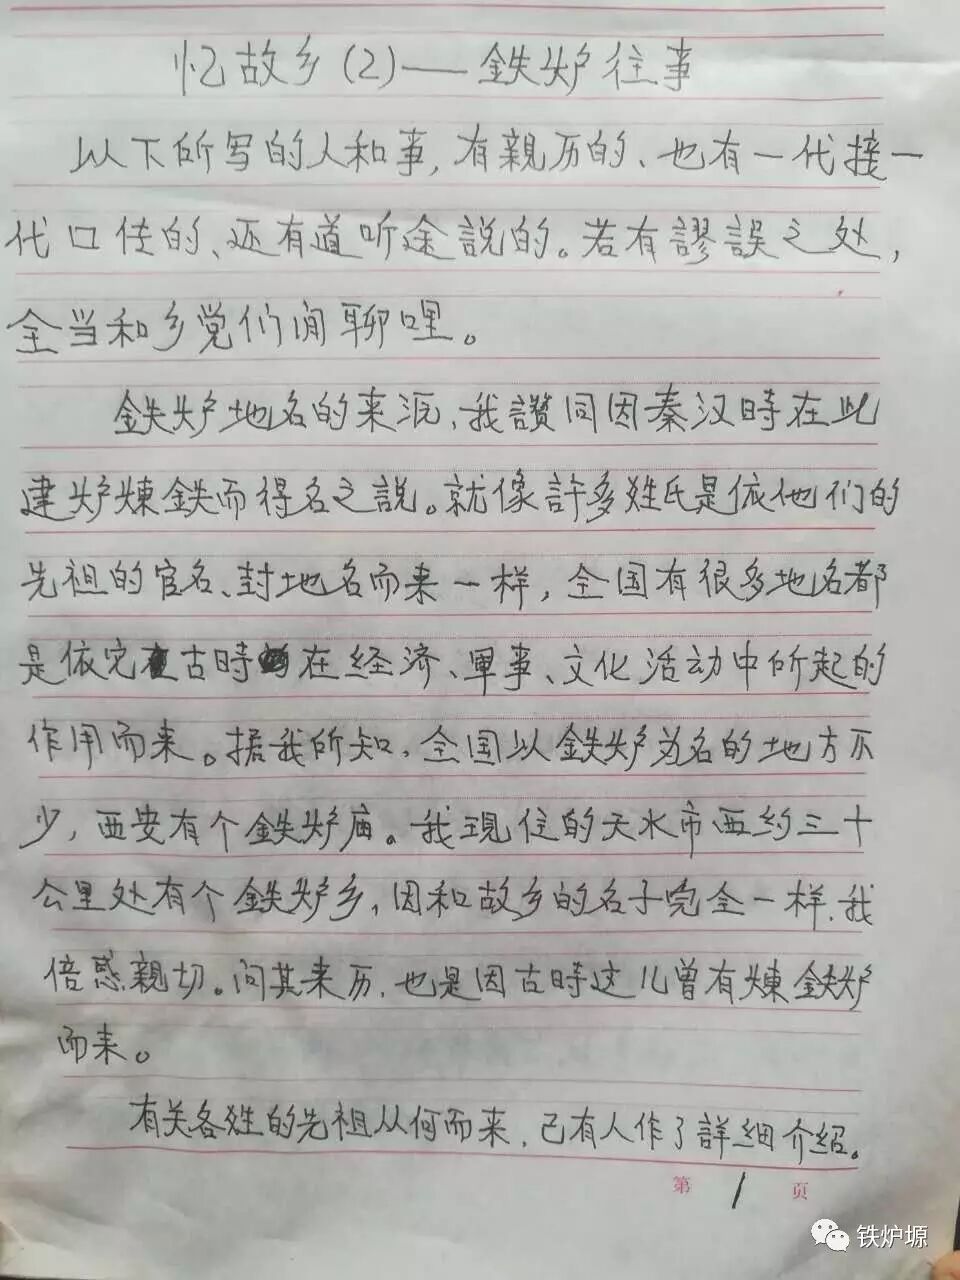 忆故乡(2)——鉄炉往事
以下所写的人和事,有親历的、也有一代接一
代口传的、还有道听途説的。若有謬誤之处,
全当和乡党们闲聊哩。
鉄炉地名的来沅、我讃同因秦汉時在此
建炉煉鉄而得名之説。就像許多姓氏是依他们的
先祖的官名、封地名而来一样,全国有很多地名都
是依它古時在経济、軍事、文化活动中所起的
作用而来。据我所知,全国以鉄炉为名的地方不
少,西安有个鉄炉庙。我現住的天水市西约三十
公里处有个鉄炉乡,因和故乡的名子完全一样,我
倍感親切。问其来历,也是因古時这儿曾有煉鉄炉
而来。
有关各姓的先祖从何而来,已有人作了詳細介紹。
第 1 页
铁炉塬